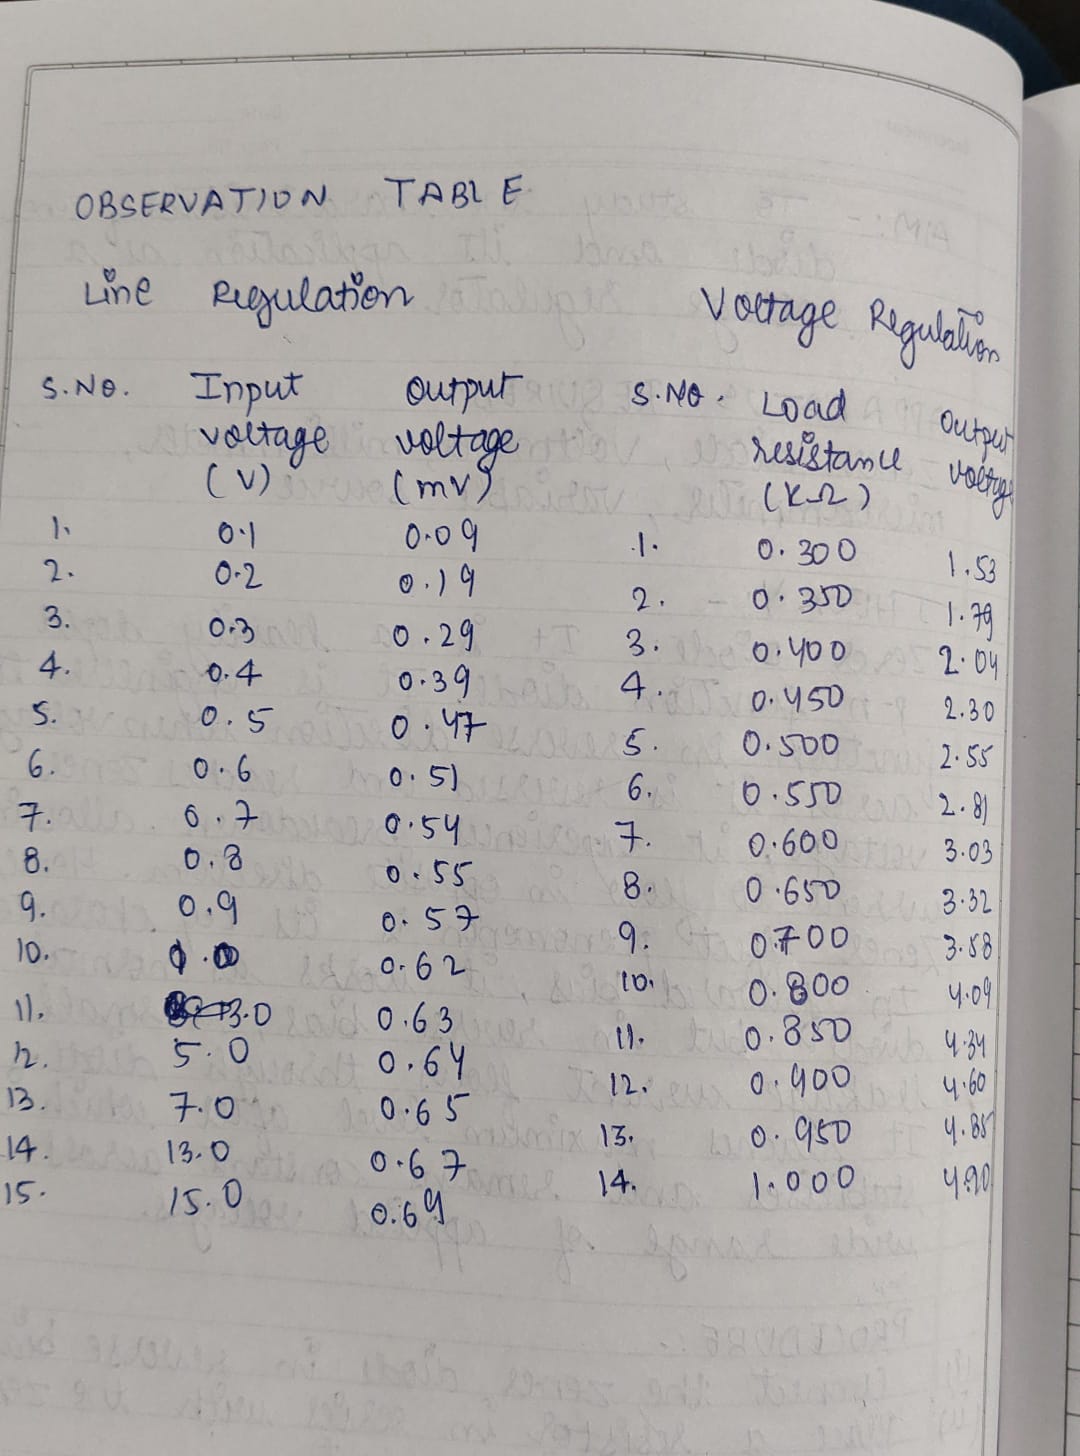 OBSERVATION TABLE
Line Regulation
S.NO. Input voltage (V) Output voltage (mV)
1. 0.1 0.09
2. 0.2 0.19
3. 0.3 0.29
4. 0.4 0.39
5. 0.5 0.47
6. 0.6 0.51
7. 0.7 0.54
8. 0.8 0.55
9. 0.9 0.57
10. 1.0 0.62
11. 3.0 0.63
12. 5.0 0.64
13. 7.0 0.65
14. 13.0 0.67
15. 15.0 0.69
Voltage Regulation
S.NO. Load resistance (KΩ) Output voltage
1. 0.300 1.53
2. 0.350 1.79
3. 0.400 2.04
4. 0.450 2.30
5. 0.500 2.55
6. 0.550 2.81
7. 0.600 3.03
8. 0.650 3.32
9. 0.700 3.58
10. 0.800 4.09
11. 0.850 4.34
12. 0.900 4.60
13. 0.950 4.85
14. 1.000 4.90